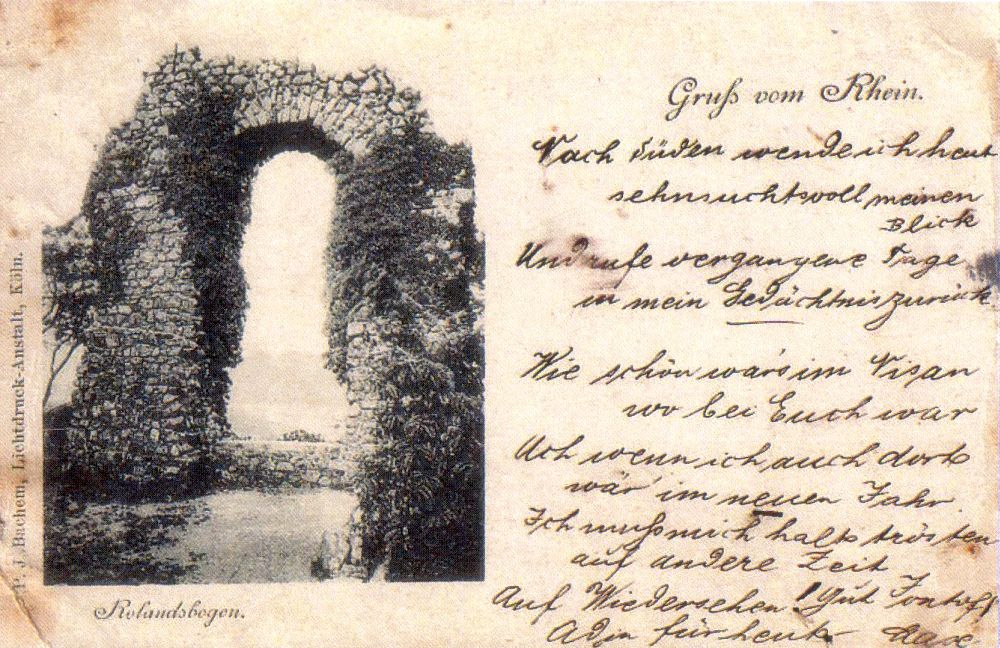 Gruß vom Rhein.
Nach Süden wende ich heut
sehnsuchtsvoll meinen
Blick
Und rufe vergangene Tage
in mein Gedächtnis zurück
Wie schön war's im Nizan
wo bei Euch war
Ach wenn ich auch dort
wär' im neuen Jahr.
Ich muß mich halt trösten
auf andere Zeit
Auf Wiedersehen! Gut
für heut
Rolandsbogen.
P. J. Bachem, Lichtdruck-Anstalt, Köln.